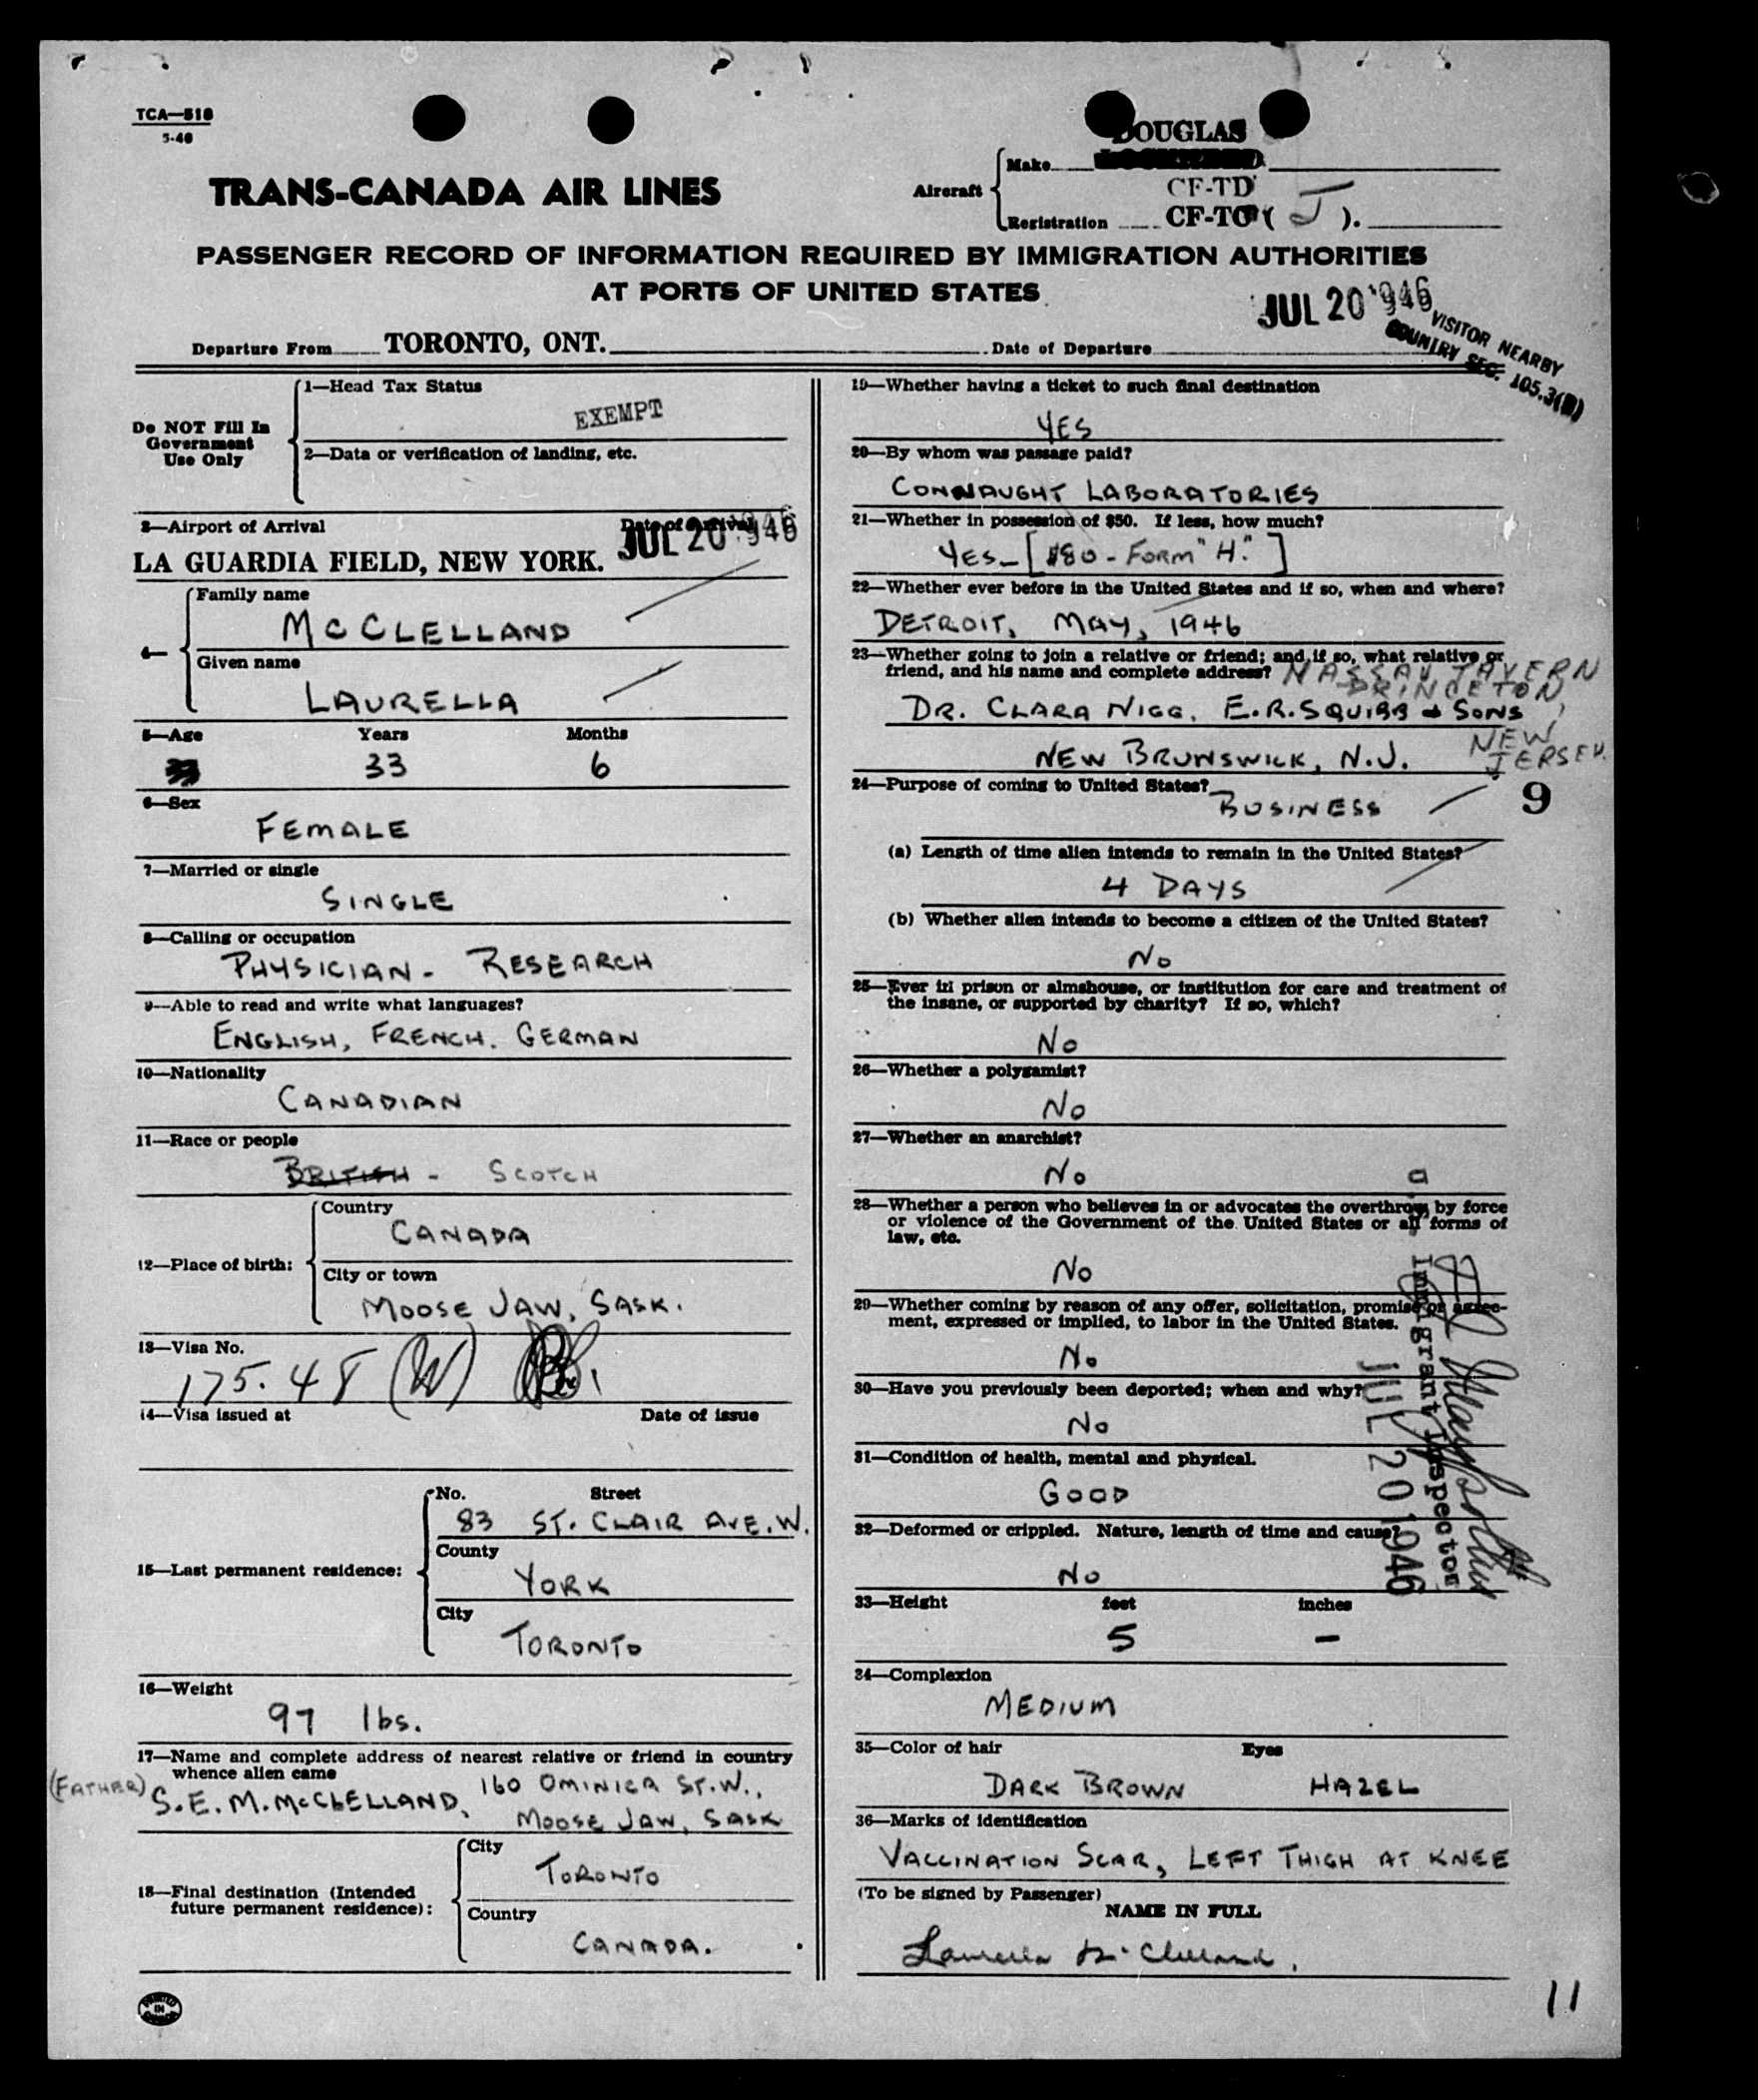 TCA—518
5-40
DOUGLAS
Make
TRANS-CANADA AIR LINES
Aircraft
CF-TD
Registration CF-TC ( J ).
PASSENGER RECORD OF INFORMATION REQUIRED BY IMMIGRATION AUTHORITIES
AT PORTS OF UNITED STATES
JUL 20 1946
VISITOR NEARBY
COUNTRY SEC. 105.3(B)
Departure From TORONTO, ONT. Date of Departure
Do NOT Fill In
Government
Use Only
1—Head Tax Status
EXEMPT
2—Data or verification of landing, etc.
3—Airport of Arrival Date of Arrival
LA GUARDIA FIELD, NEW YORK. JUL 20 1946
4—
Family name
McCLELLAND
Given name
LAURELLA
5—Age Years Months
33 33 6
6—Sex
FEMALE
7—Married or single
SINGLE
8—Calling or occupation
PHYSICIAN - RESEARCH
9—Able to read and write what languages?
ENGLISH, FRENCH. GERMAN
10—Nationality
CANADIAN
11—Race or people
BRITISH - SCOTCH
12—Place of birth:
Country
CANADA
City or town
MOOSE JAW, SASK.
13—Visa No.
175.48 (W)
14—Visa issued at Date of issue
15—Last permanent residence:
No. Street
83 ST. CLAIR AVE. W.
County
YORK
City
TORONTO
16—Weight
97 lbs.
17—Name and complete address of nearest relative or friend in country
whence alien came
(FATHER) S.E.M. McCLELLAND, 160 OMINICA ST. W.,
MOOSE JAW, SASK
18—Final destination (Intended
future permanent residence):
City
TORONTO
Country
CANADA.
PRINTED
IN
CANADA
19—Whether having a ticket to such final destination
YES
20—By whom was passage paid?
CONNAUGHT LABORATORIES
21—Whether in possession of $50. If less, how much?
YES - [ $80 - FORM "H." ]
22—Whether ever before in the United States and if so, when and where?
DETROIT, MAY, 1946
23—Whether going to join a relative or friend; and if so, what relative or
friend, and his name and complete address? NASSAU TAVERN
PRINCETON,
DR. CLARA NIGG, E.R. SQUIBB & SONS
NEW
JERSEY.
NEW BRUNSWICK, N.J.
24—Purpose of coming to United States?
BUSINESS
9
(a) Length of time alien intends to remain in the United States?
4 DAYS
(b) Whether alien intends to become a citizen of the United States?
No
25—Ever in prison or almshouse, or institution for care and treatment of
the insane, or supported by charity? If so, which?
No
26—Whether a polygamist?
No
27—Whether an anarchist?
No
28—Whether a person who believes in or advocates the overthrow by force
or violence of the Government of the United States or all forms of
law, etc.
No
29—Whether coming by reason of any offer, solicitation, promise or agree-
ment, expressed or implied, to labor in the United States.
No
30—Have you previously been deported; when and why?
No
31—Condition of health, mental and physical.
GOOD
32—Deformed or crippled. Nature, length of time and cause?
No
Immigrant Inspector
JUL 20 1946
33—Height feet inches
5 —
34—Complexion
MEDIUM
35—Color of hair Eyes
DARK BROWN HAZEL
36—Marks of identification
VACCINATION SCAR, LEFT THIGH AT KNEE
(To be signed by Passenger)
NAME IN FULL
Laurella McClelland.
11